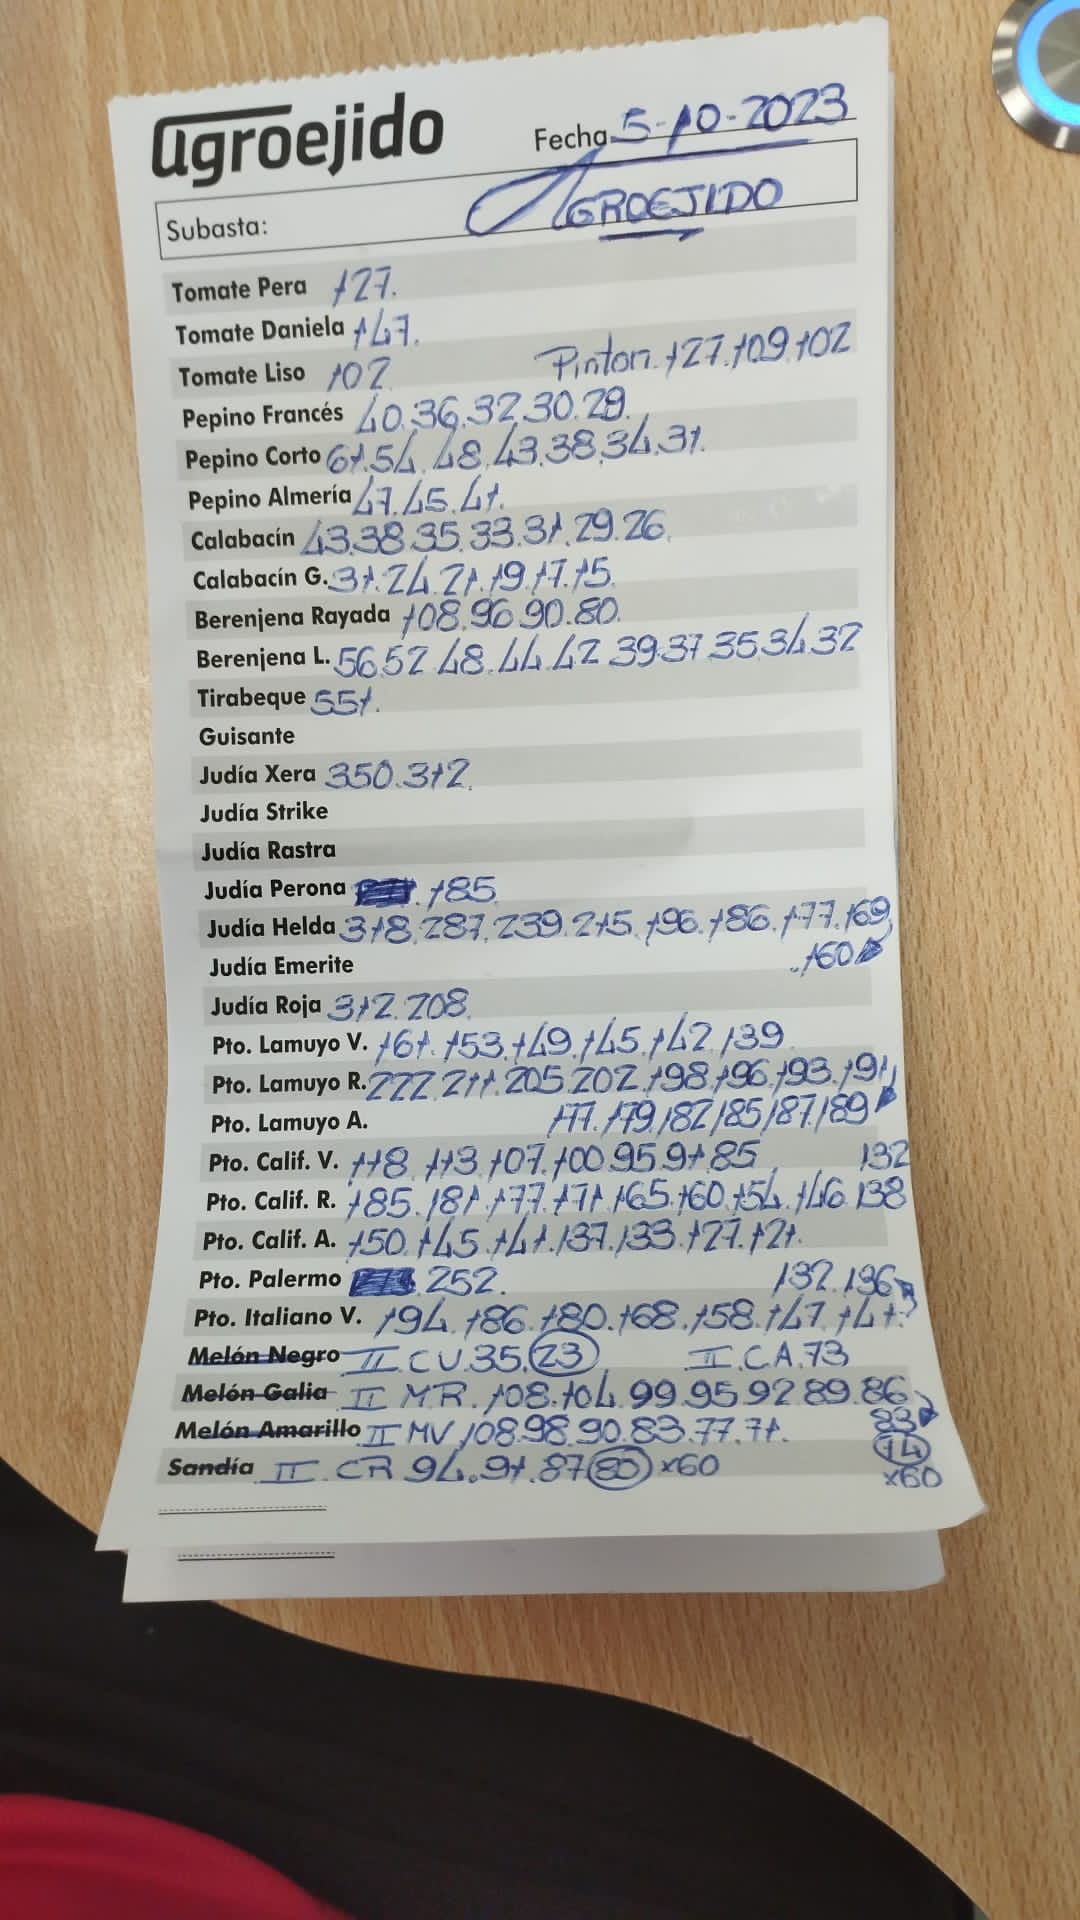 agroejido
Fecha 5-10-2023
Subasta: AGROEJIDO
Tomate Pera 127.
Tomate Daniela 147.
Tomate Liso 102 Pinton. 127.109.102
Pepino Francés 40.36.32.30.29.
Pepino Corto 61.54.48.43.38.34.31.
Pepino Almería 47.45.41.
Calabacín 43.38.35.33.31.29.26.
Calabacín G. 31.24.21.19.17.15.
Berenjena Rayada 108.96.90.80.
Berenjena L. 56.52.48.44.42.39.37.35.34.32
Tirabeque 551.
Guisante
Judía Xera 350.312.
Judía Strike
Judía Rastra
Judía Perona . 185.
Judía Helda 318.287.239.215.196.186.177.169
Judía Emerite .160
Judía Roja 312.208.
Pto. Lamuyo V. 161.153.149.145.142.139
Pto. Lamuyo R. 222.211.205.202.198.196.193.191
Pto. Lamuyo A. 177.179.182/185/187/189
Pto. Calif. V. 118.113.107.100.95.91.85 132
Pto. Calif. R. 185.181.177.171.165.160.154.146.138
Pto. Calif. A. 150.145.141.137.133.127.121.
Pto. Palermo . 252. 132.136
Pto. Italiano V. 194.186.180.168.158.147.141.
Melón Negro II.CV.35.23 II.CA.73
Melón Galia II MR.108.104.99.95.92.89.86
83
Melón Amarillo II MV 108.98.90.83.77.71.
74
x60
Sandía II CR 94.91.87 80 x60